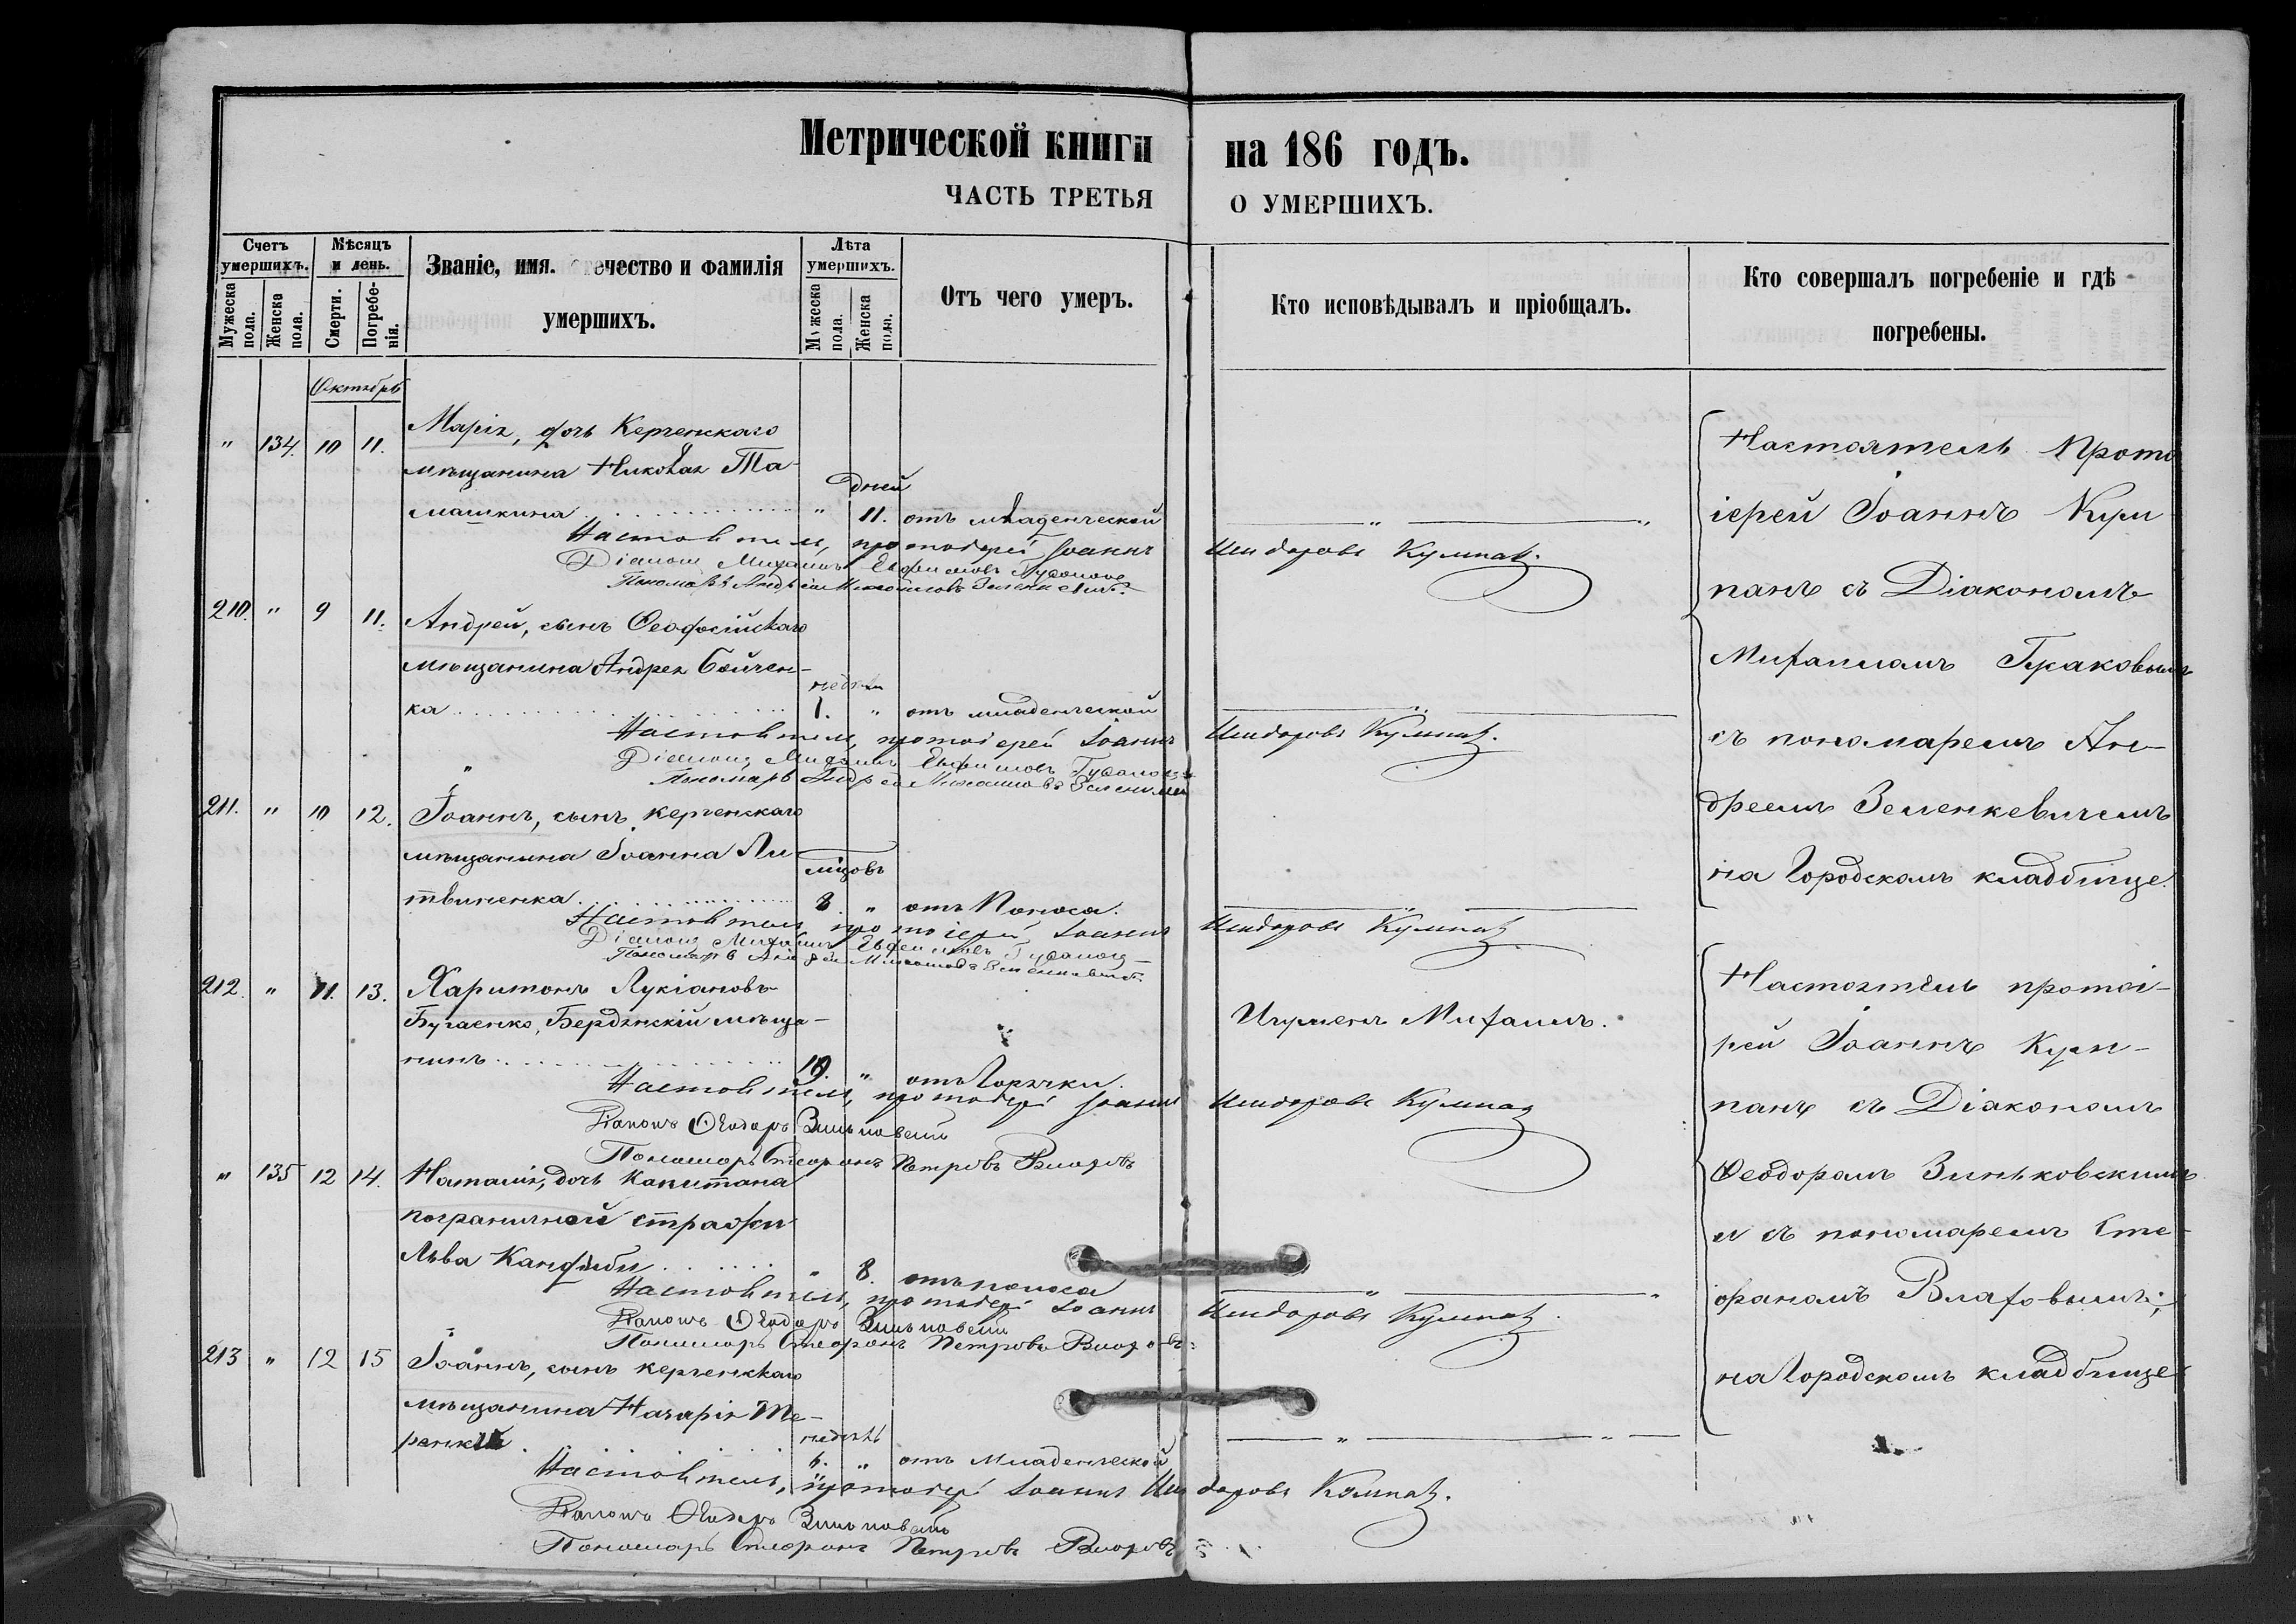 Метрической книги на 186 годъ.
ЧАСТЬ ТРЕТЬЯ О УМЕРШИХЪ.
Счетъ умершихъ.
Мужеска пола.
Женска пола.
Мѣсяцъ и день.
Смерти.
Погребенія.
Званіе, имя. отечество и фамилія
умершихъ.
Лѣта умершихъ.
Мужеска пола.
Женска пола.
Отъ чего умеръ.
Кто исповѣдывалъ и пріобщалъ.
Кто совершалъ погребеніе и гдѣ
погребены.
Октябрь
" 134. 10 11. Марія, дочь Керченскаго
мѣщанина Николая Та-
дней
машкина " 11. отъ младенческой "
Настоятель, протоіерей Іоаннъ Исидоровъ Кумпанъ.
Діаконъ Михаилъ Евфимовъ
Пономарь Андрей Михайловъ Зеленкевичъ
210. " 9 11. Андрей, сынъ Ѳеодосійскаго
мѣщанина Андрея Бойчен-
недѣли
ка 1. " отъ младенческой "
Настоятель, протоіерей Іоаннъ Исидоровъ Кумпанъ.
Діаконъ Михаилъ Евфимовъ
Пономарь Андрей Михайловъ Зеленкевичъ
211. " 10 12. Іоаннъ, сынъ Керченскаго
мѣщанина Іоанна Ли-
мѣсяцовъ
твиненка 8. " отъ Поноса. "
Настоятель, протоіерей Іоаннъ Исидоровъ Кумпанъ
Діаконъ Михаилъ Евфимовъ
Пономарь Андрей Михайловъ Зеленкевичъ
Настоятель Прото
іерей Іоаннъ Кум
панъ съ Діакономъ
Михаиломъ
съ пономаремъ Ан-
дреемъ Зеленкевичемъ
на Городскомъ кладбище.
212. " 11. 13. Харитонъ Лукіановъ
Бугаенко, Бердянскій мѣща- Игуменъ Михаилъ.
нинъ " отъ Горячки.
Настоятель, протоіерей Іоаннъ Исидоровъ Кумпанъ
Діаконъ Ѳеодоръ Зиньковскій
Пономарь Стефанъ Петровъ Влаховъ
" 135 12 14. Наталія, дочь Капитана
пограничной стражи
Льва " 8. отъ поноса "
Настоятель, протоіерей Іоаннъ Исидоровъ Кумпанъ.
Діаконъ Ѳеодоръ Зиньковскій
Пономарь Стефанъ Петровъ Влаховъ
213 " 12 15 Іоаннъ, сынъ Керченскаго
мѣщанина Назарія Те-
недѣль
" отъ Младенческой "
Настоятель, протоіерей Іоаннъ Исидоровъ Кумпанъ.
Діаконъ Ѳеодоръ Зиньковскій
Пономарь Стефанъ Петровъ Влаховъ
Настоятель протоі-
рей Іоаннъ Кум-
панъ съ Діакономъ
Ѳеодоромъ Зиньковскимъ
и съ пономаремъ Сте-
фаномъ Влаховымъ;
на Городскомъ кладбище